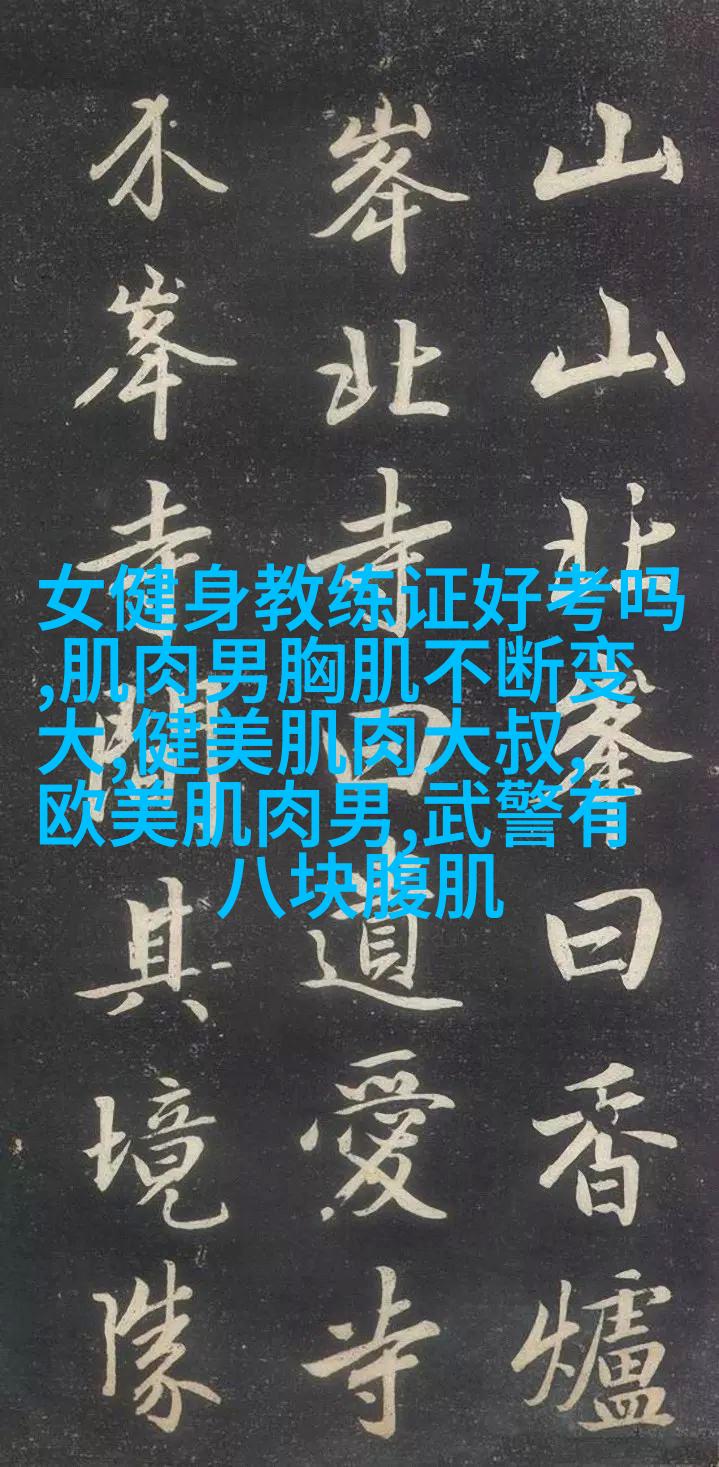 山山北峯曰香爐
峯北寺曰遺愛寺
介峯寺間其境勝
女健身教练证好考吗
,肌肉男胸肌不断变
大,健美肌肉大叔,
欧美肌肉男,武警有
八块腹肌